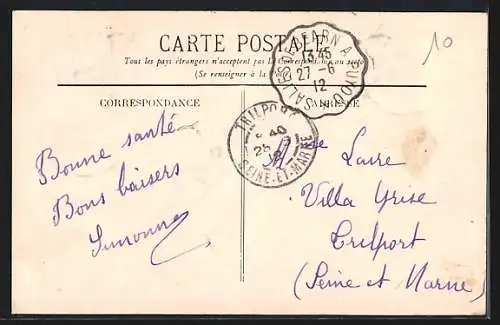 CARTE POSTALE
Tous les pays étrangers n'acceptent pas la Correspondance au recto
(Se renseigner à la Poste)
CORRESPONDANCE
ADRESSE
10
SALIES-DE-BÉARN A PUYOO
13 45
27-6
12
TRILPORT
SEINE-ET-MARNE
Bonne santé
Bons baisers
Simonne
Laure
Villa Grise
Trilport
(Seine et Marne)